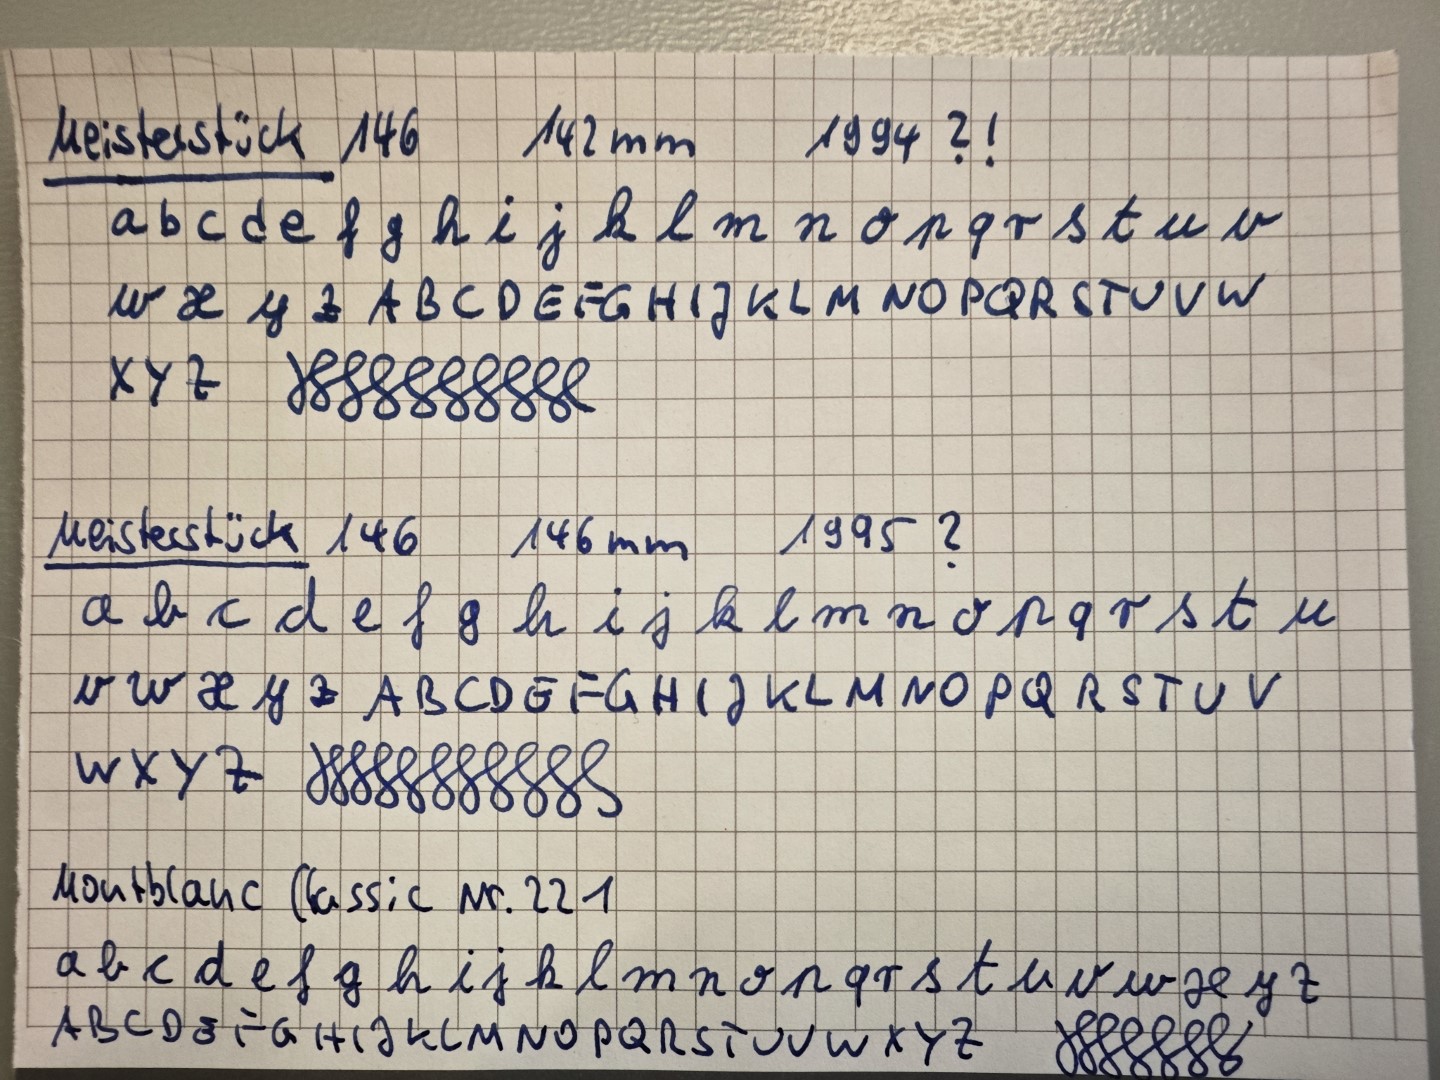 Meisterstück 146 142mm 1994 ?!
a b c d e f g h i j k l m n o p q r s t u v
w x y z A B C D E F G H I J K L M N O P Q R S T U V W
X Y Z
Meisterstück 146 146mm 1995 ?
a b c d e f g h i j k l m n o p q r s t u
v w x y z A B C D E F G H I J K L M N O P Q R S T U V
W X Y Z
Montblanc Classic Nr. 221
a b c d e f g h i j k l m n o p q r s t u v w x y z
A B C D E F G H I J K L M N O P Q R S T U V W X Y Z